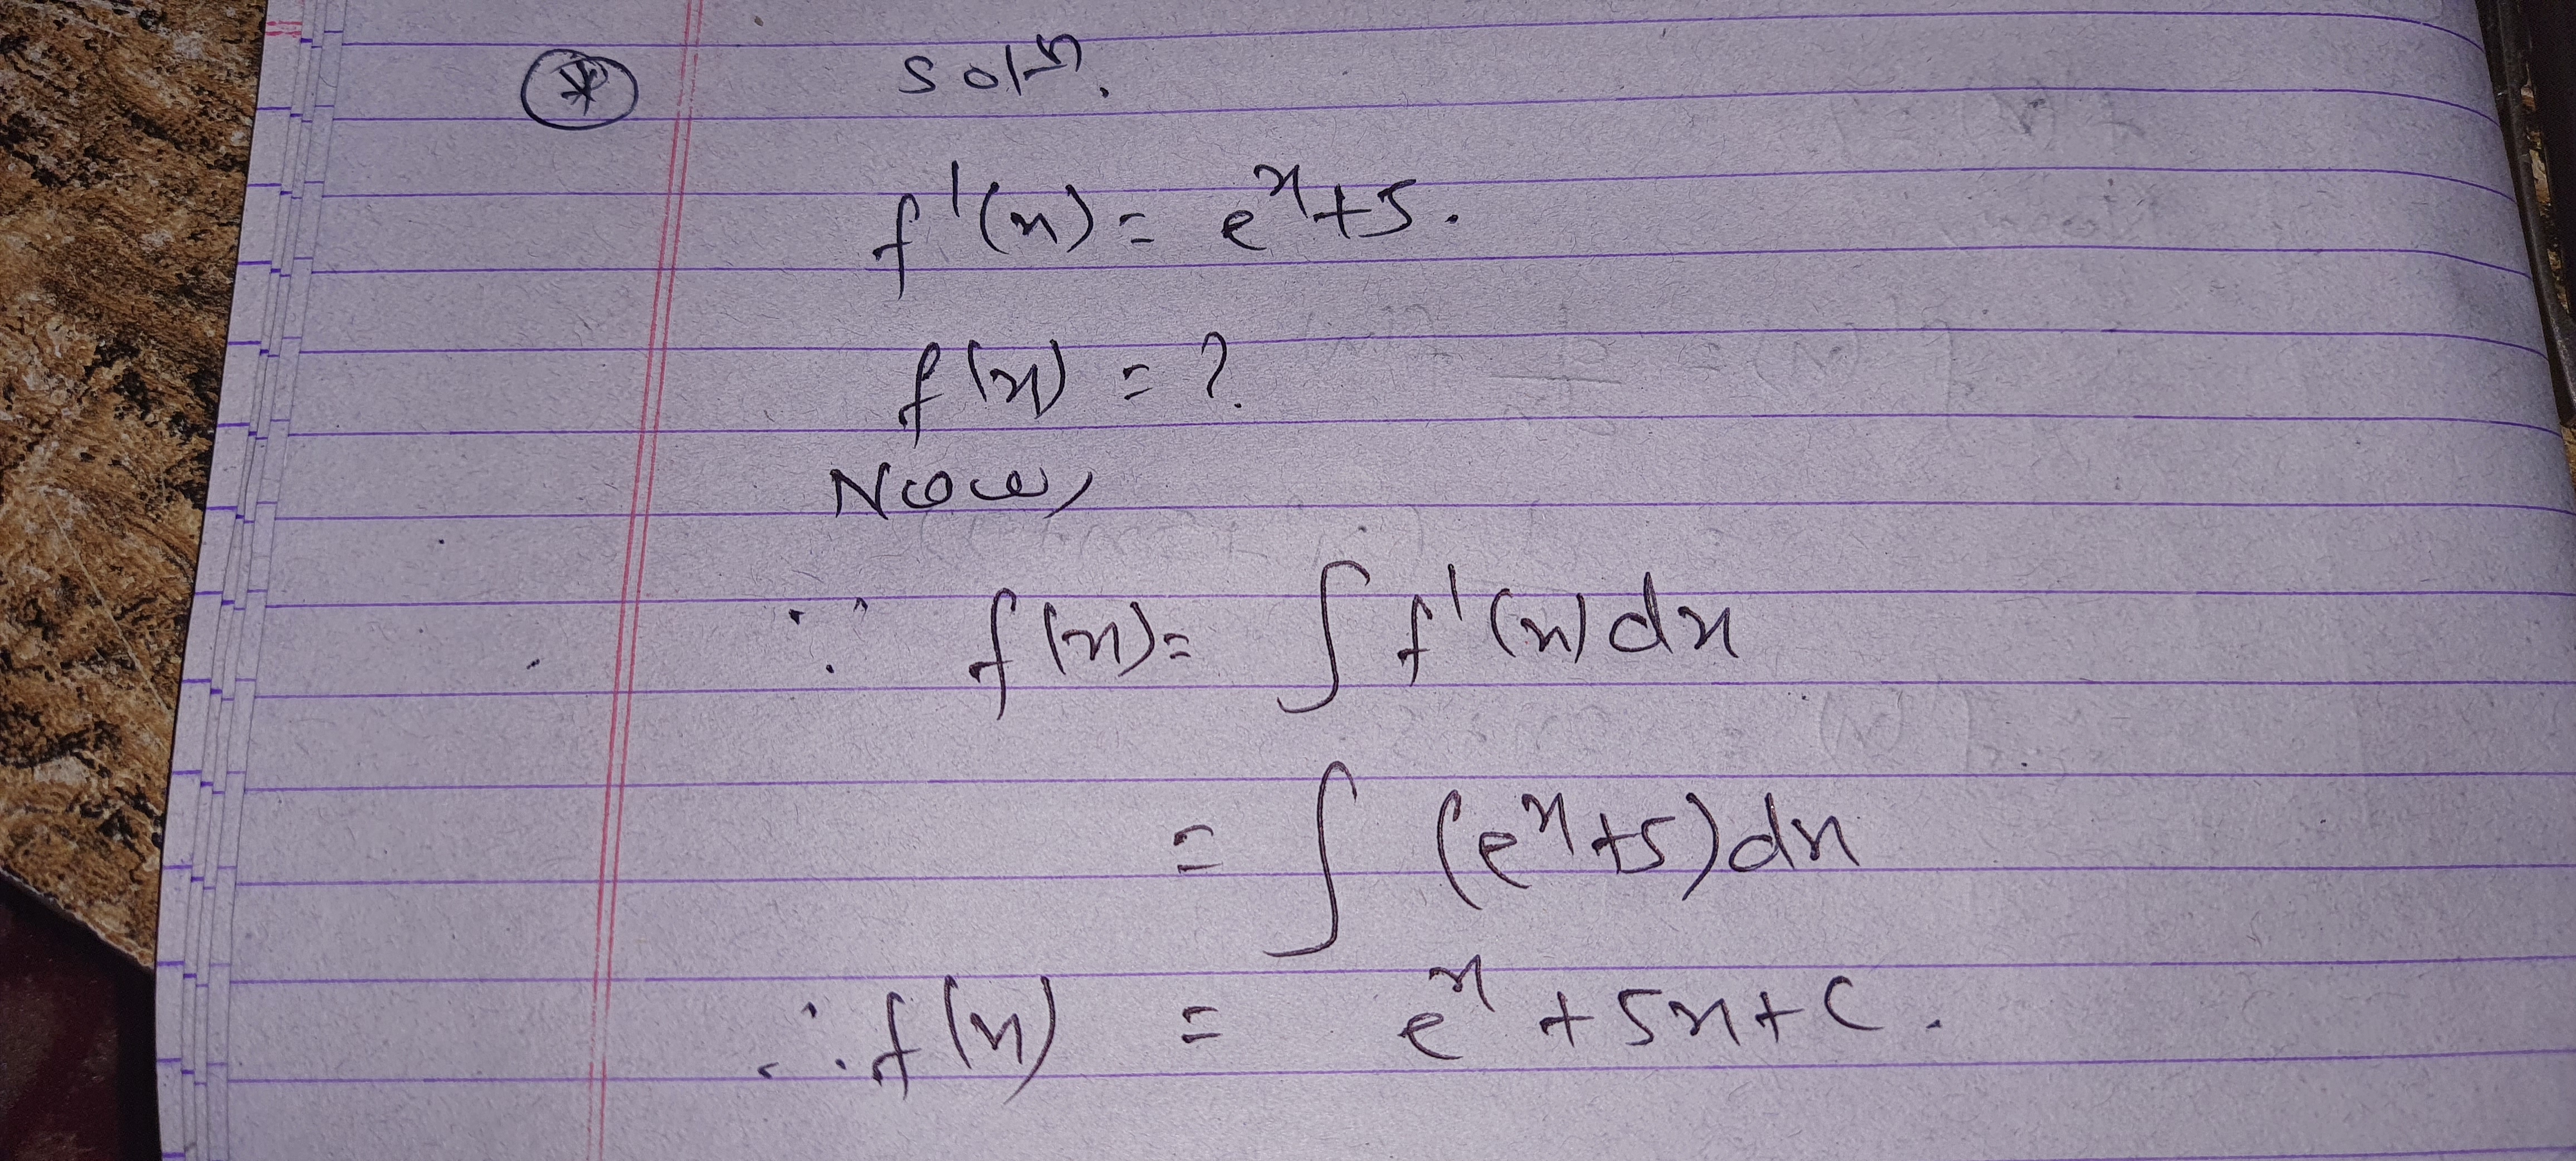 * Solⁿ.
f'(x) = eˣ+5.
f(x) = ?
Now,
∵ f(x) = ∫ f'(x) dx
= ∫ (eˣ+5) dx
∴ f(x) = eˣ + 5x + C.